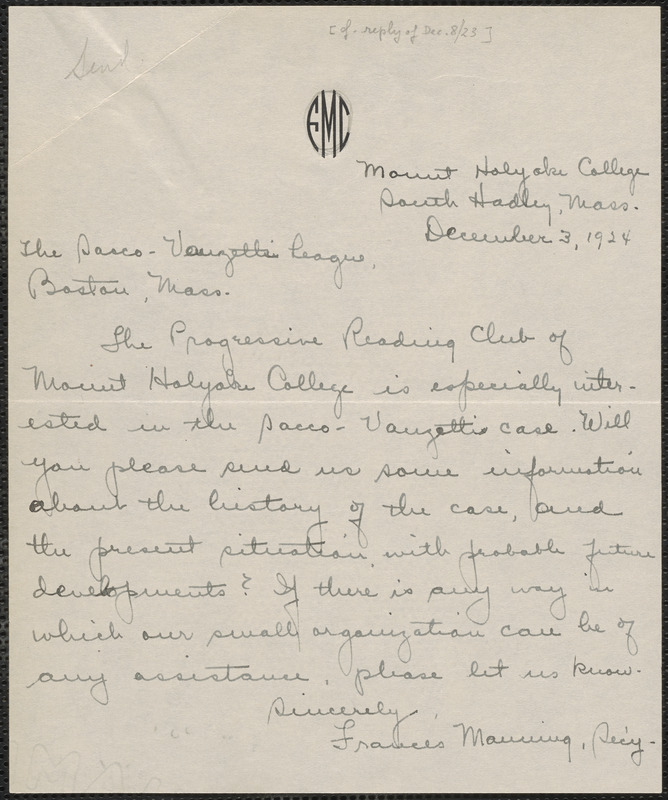 [cf. reply of Dec. 8/23]
Send.
FMC
Mount Holyoke College
South Hadley, Mass.
December 3, 1924
The Sacco-Vanzetti League,
Boston, Mass.
The Progressive Reading Club of
Mount Holyoke College is especially inter-
ested in the Sacco-Vanzetti case. Will
you please send us some information
about the history of the case, and
the present situation, with probable future
developments? If there is any way in
which our small organization can be of
any assistance, please let us know.
Sincerely,
Frances Manning, Sec'y.